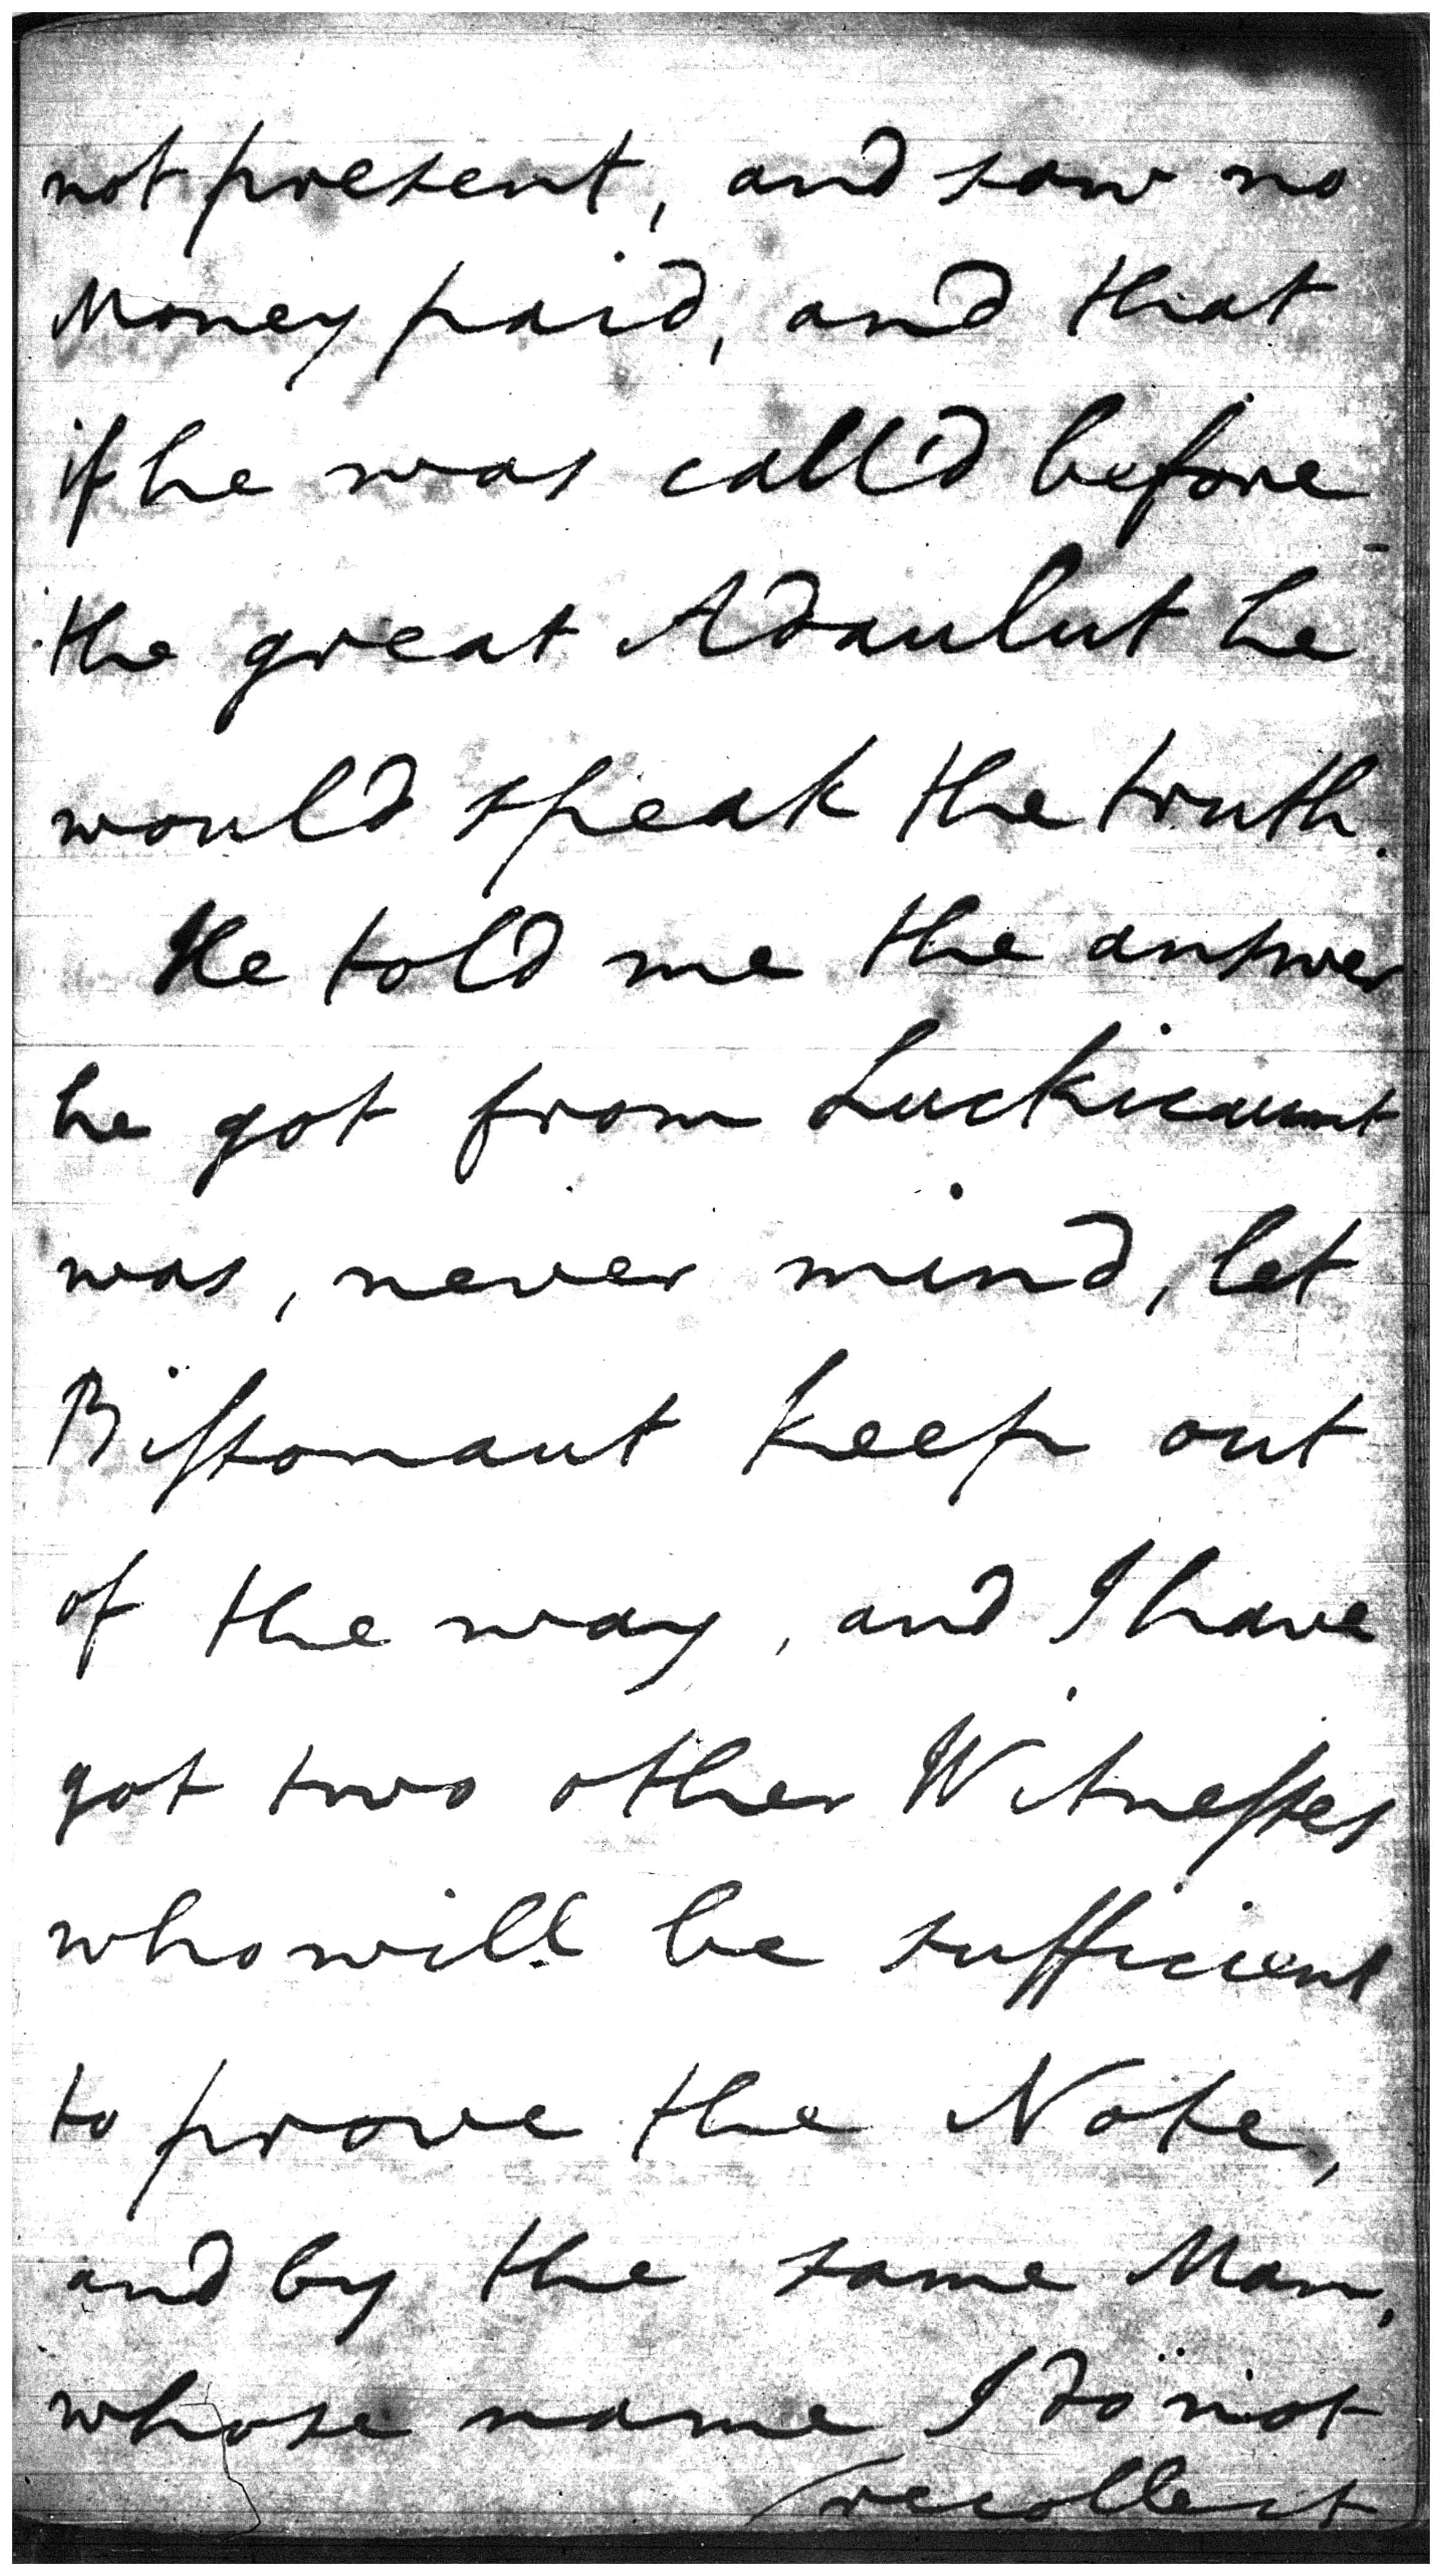 not present, and saw no
Money paid, and that
if he was call'd before
the great Adaulut he
would speak the truth.
He told me the answer
he got from Luckicaunt
was, never mind, let
Bissonaut keep out
of the way, and I have
got two other Witnesses
who will be sufficient
to prove the Note,
and by the same Man,
whose name I do not
recollect